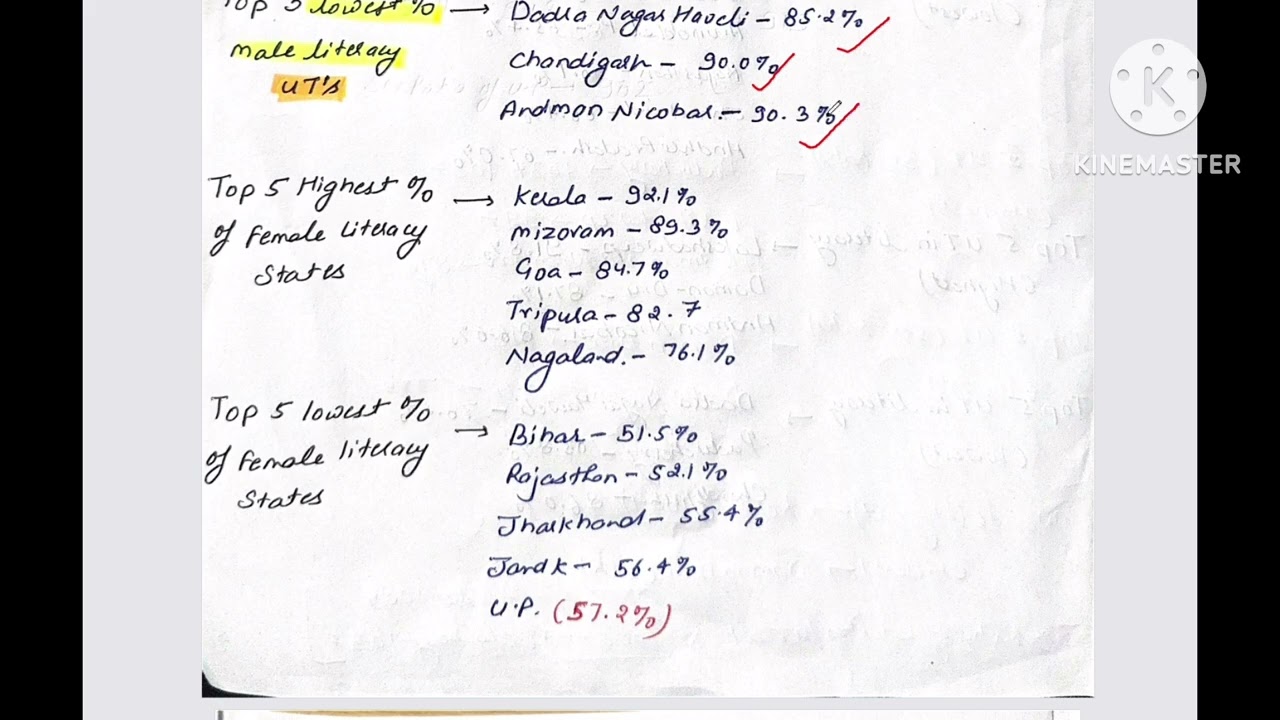 Top 3 lowest % → Dadra Nagar Haveli - 85.2%
male literacy
UT's
Chandigarh - 90.0%
Andman Nicobar - 90.3%
K
KINEMASTER
Top 5 Highest % → Kerala - 92.1%
of Female Literacy
States
mizoram - 89.3%
Goa - 84.7%
Tripura - 82.7
Nagaland. - 76.1%
Top 5 lowest % → Bihar - 51.5%
of Female literacy
States
Rajasthan - 52.1%
Jharkhand - 55.4%
Jand k - 56.4%
U.P. (57.2%)